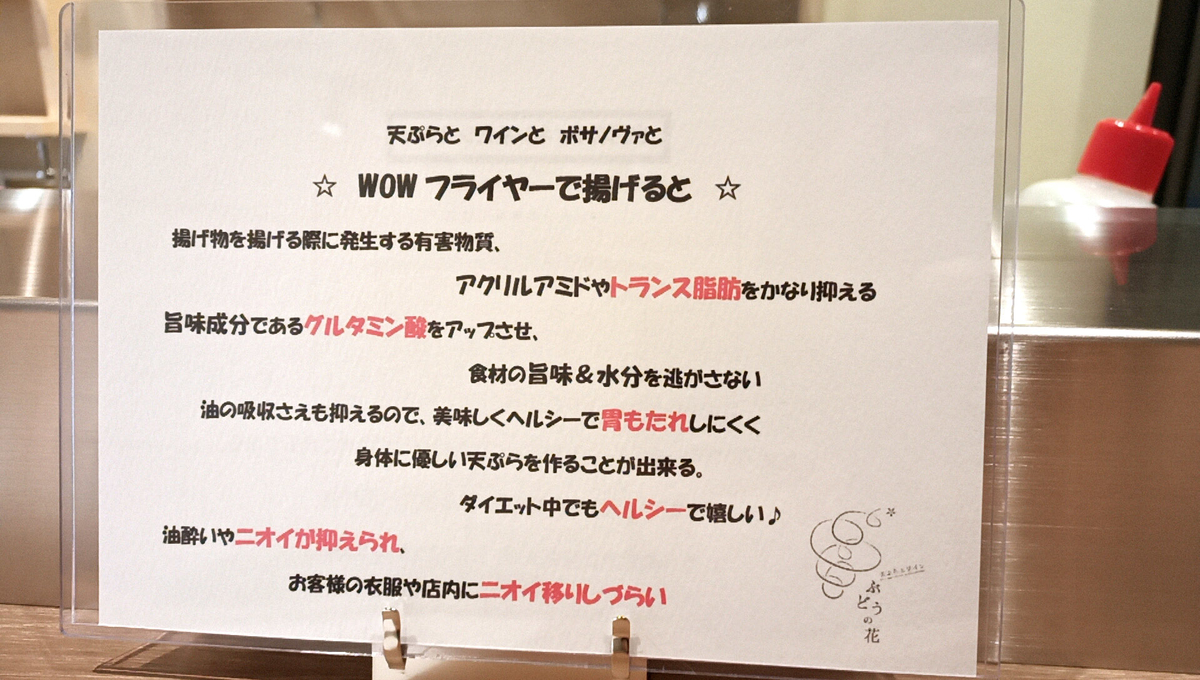 天ぷらと ワインと ボサノヴァと
☆ WOWフライヤーで揚げると ☆
揚げ物を揚げる際に発生する有害物質、
アクリルアミドやトランス脂肪をかなり抑える
旨味成分であるグルタミン酸をアップさせ、
食材の旨味＆水分を逃がさない
油の吸収さえも抑えるので、美味しくヘルシーで胃もたれしにくく
身体に優しい天ぷらを作ることが出来る。
ダイエット中でもヘルシーで嬉しい♪
油酔いやニオイが抑えられ、
お客様の衣服や店内にニオイ移りしづらい
天ぷらとワイン
ぶどうの花